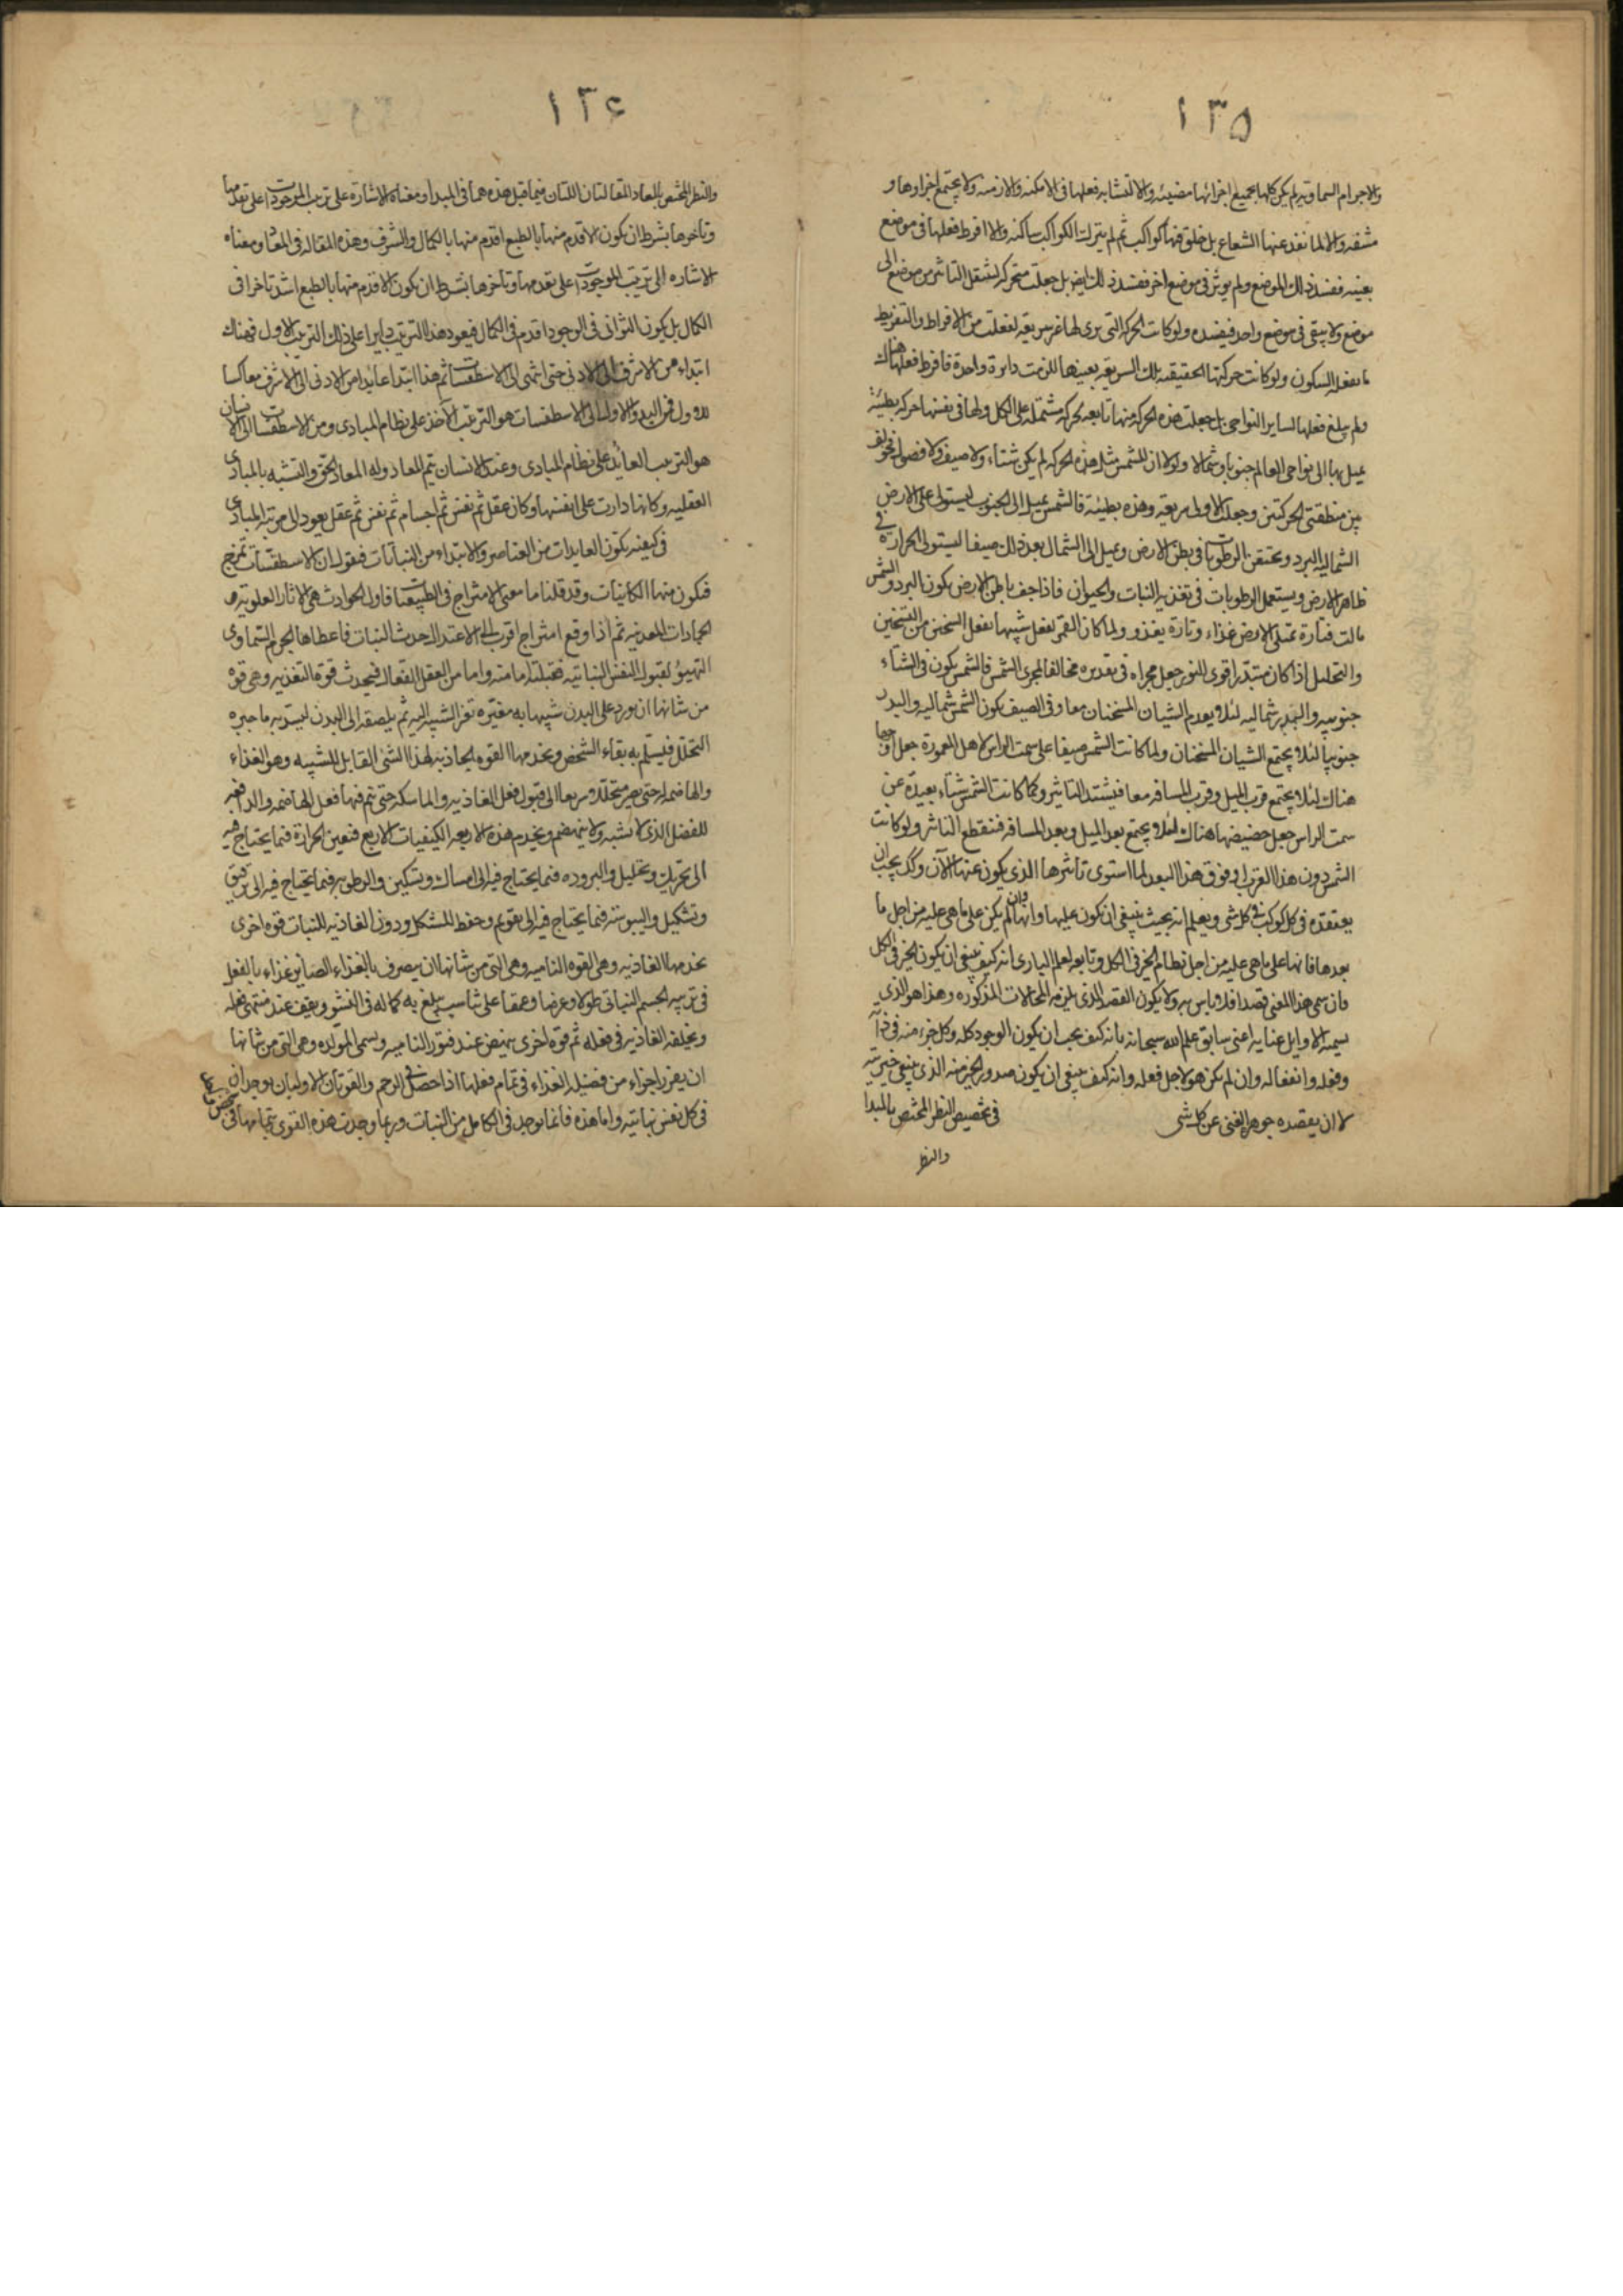 ١٣٥
والاجرام السماوية لم يكن كلها بجميع اجزائها مضيئه والا لتشابه فعلها فى الامكنه والازمنه ولا يجتمع اجزاوها و
مشفه والا لما نفذ عنها الشعاع بل خلق فيها كواكب ثم لم يترك الكواكب ساكنه والا افرط فعلها فى موضع
بعينه ففسد ذلك الموضع ولم يوثر فى موضع اخر ففسد ذلك ايض بل جعلت متحركه لينتقل التاثير من موضع الى
موضع ولا يبقى فى موضع واحد فيفسده ولو كانت الحركه التى يرى لها غير سريعه لفعلت من الافراط والتفريط
ما يفعله السكون ولو كانت حركتها الحقيقيه تلك السريعه بعينها للزمت دايرة واحدة فافرط فعلها هناك
ولم يبلغ فعلها لساير النواحى بل جعلت هذه الحركه منها تابعه لحركه مشتمله على الكل ولها فى نفسها حركه بطيئة
يميل بها الى نواحى العالم جنوبا وشمالا ولولا ان للشمس مثل هذه الحركه لم يكن شتاء ولا صيف ولا فصول فخولف
بين منطقتى الحركتين وجعلت الاولى سريعه وهذه بطيئة فالشمس يميل الى الجنوب ليستولى على الارض
الشماليه البرد ويحتقن الرطوبات فى بطن الارض ويميل الى الشمال بعد ذلك صيفا ليستولى الحرارة فى
ظاهر الارض ويستعمل الرطوبات فى تغذيه النبات والحيوان فاذا جف باطن الارض يكون البرد والشمس
مالت فتارة تمتلى الارض غذاء وتارة يغذو ولما كان القمر يفعل شبيها بفعل الشمس من التسخين
والتحليل اذا كان متبدرا قوى النور جعل مجراه فى تبديره مخالفا لمجرى الشمس فالشمس يكون فى الشتاء
جنوبيه والبدر شماليه لئلا يعدم الشيان المسخنان معا وفى الصيف يكون الشمس شماليه والبدر
جنوبيا لئلا يجتمع الشيان المسخنان ولما كانت الشمس صيفا على سمت الراس لاهل المعمورة جعل اوجها
هناك لئلا يجتمع قرب الميل وقرب المسافه معا فيشتد التاثير ولما كانت الشمس شتاء بعيدة عن
سمت الراس جعل حضيضها هناك لئلا يجتمع بعد الميل وبعد المسافه فينقطع التاثير ولو كانت
الشمس دون هذا القرب او فوق هذا البعد لما استوى تاثيرها الذى يكون عنها الآن وكك يجب ان
يعتقده فى كل كوكب وفى كل شى ويعلم انه بحيث ينبغى ان يكون عليها وانها وان لم يكن على ما هى عليه من اجل ما
بعدها فانها على ما هى عليه من اجل نظام الخير فى الكل وتابعه لعلم البارى انه كيف ينبغى ان يكون الخير فى الكل
فان سمى هذا المعنى قصدا فلا باس به ولا يكون القصد الذى يلزمه المحالات المذكوره وهذا هو الذى
يسميه الاوايل عنايه اعنى سابق علم الله سبحانه بانه كيف يجب ان يكون الوجود كله وكل جزء منه فى ذاته
وفعله وانفعاله وان لم يكن هو لاجل فعله وانه كيف ينبغى ان يكون صدور الخير منه الذى يتبع خيريته
لا ان يقصده جوهره الغنى عن كل شى فى تخصيص النظر المختص بالمبدا
والنظر
١٣٤
والنظر المختص بالمعاد المقالتان اللتان فيما قبل هذه هما فى المبدا ومعناه الاشارة على ترتيب الموجودات على تقدمها
وتاخرها بشرط ان يكون الاقدم منها بالطبع اقدم منها بالكمال والشرف وهذه المقاله فى المعاد ومعناه
الاشاره الى ترتيب الموجودات على تقدمها وتاخرها بشرط ان يكون الاقدم منها بالطبع اشد تاخرا فى
الكمال بل يكون الثوانى فى الوجود اقدم فى الكمال فيعود هذا الترتيب دايرا على ذلك الترتيب الاول فهناك
ابتداء من الاشرف الى الادنى حتى انتهى الى الاسطقسات ثم هذا ابتدا عايدا من الادنى الى الاشرف معاكسا
للاول فمن المبدا الاول الى الاسطقسات هو الترتيب الآخذ على نظام المبادى ومن الاسطقسات الى الانسان
هو الترتيب العائد على نظام المبادى وعند الانسان يتم المعاد وله المعاد الحق والتشبه بالمبادى
العقليه وكانها دارت على انفسها وكان عقل ثم نفس ثم اجسام ثم نفس ثم عقل يعود الى مرتبه المبادى
فى كيفيه تكون العايدات من العناصر والابتداء من النباتات فيقول ان الاسطقسات تمتزج
فتكون منها الكاينات وقد قلنا ما معنى الامتزاج فى الطبيعيات فاول الحوادث هى الاثار العلويه و
الجمادات المعدنيه ثم اذا وقع امتزاج اقرب الى الاعتدال حدث النبات فاعطاها الجرم السماوى
التهيؤ لقبول النفس النباتيه فقبلتها اما منه واما من العقل الفعال فيحدث قوة التغذيه وهى قوه
من شانها ان يورد على البدن شبيها به مغيره تغير الشبيه اليه ثم يلصقه الى البدن ليسد به ما جبره
التحلل فيستلم به بقاء الشخص ويخدمها القوه الجاذبه لهذا الشى القابل للشبيه وهو الغذاء
والهاضمه له حتى يصير متحللا سريعا الى قبول فعل الغاذيه والماسكه حتى يتم فيها فعل الهاضمه والدافعه
للفضل الذى لا يشبه ولا ينهضم ويخدم هذه الاربعه الكيفيات الاربع فتعين الحرارة فيما يحتاج فيه
الى تحريك وتحليل والبروده فيما يحتاج فيه الى امساك وتسكين والرطوبه فيما يحتاج فيه الى ترقيق
وتشكيل واليبوسه فيما يحتاج فيه الى تقويم وحفظ للشكل ودون الغاذيه للنبات قوه اخرى
يخدمها الغاذيه وهى القوه الناميه وهى التى من شانها ان يصرف بالغذاء الصاير غذاء بالفعل
فى تربيه الجسم النباتى طولا وعرضا وعمقا على تناسب يبلغ به كماله فى النشو ويقف عند منتهى فعله
ويخلفه الغاذيه فى فعله ثم قوة اخرى ينهض عند فتور الناميه ويسمى المولده وهى التى من شانها
ان يفرز اجزاء من فضيله الغذاء فى تمام فعلها اذا حصل فى الرحم والقوتان الاوليان يوجدان
فى كل نفس نباتيه واما هذه فانما يوجد فى الكامل من النبات وربما وجدت هذه القوى بتمامها فى